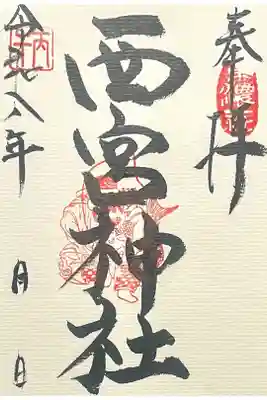 奉拝
西宮神社
令和八年
月
日